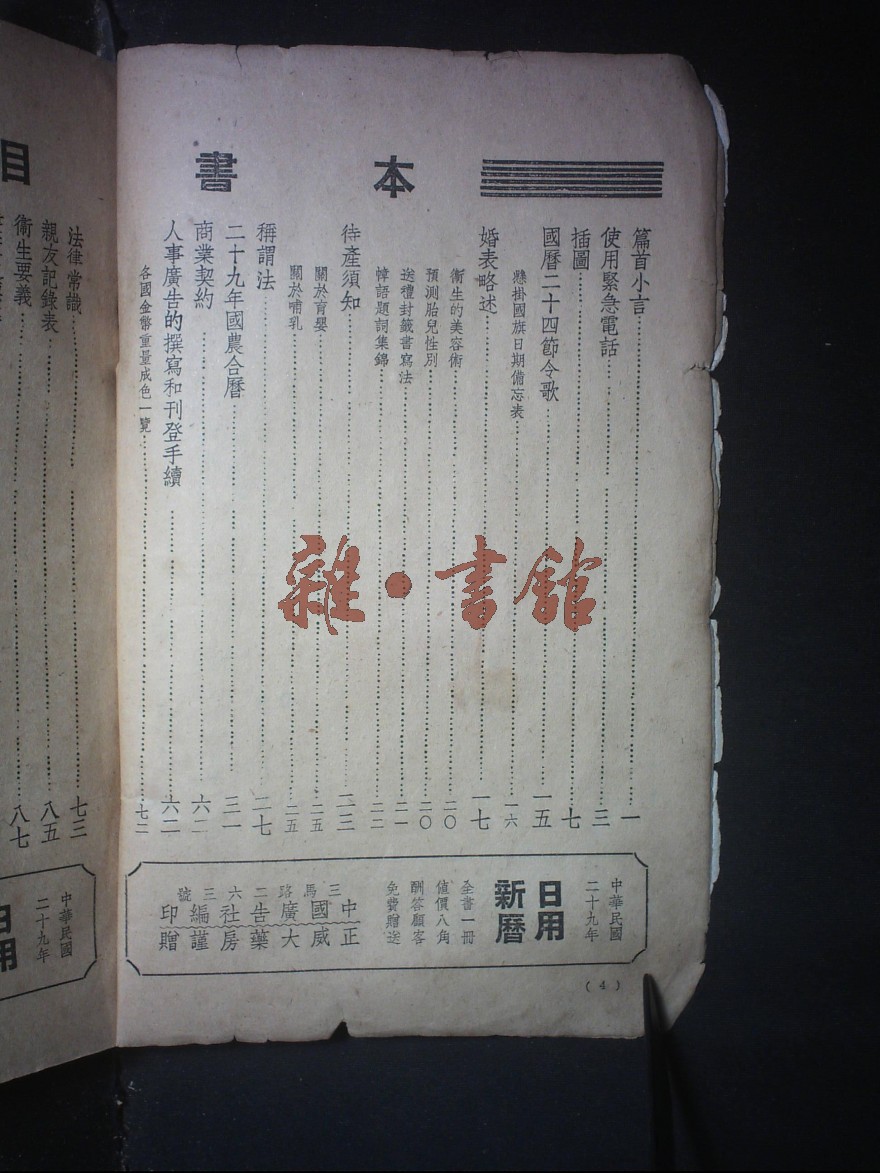 本書
篇首小言 一
使用緊急電話 三
插圖 七
國曆二十四節令歌 一五
懸掛國旗日期備忘表 一六
婚表略述 一七
衞生的美容術 二〇
預測胎兒性別 二〇
送禮封籤書寫法 二一
悼語題詞集錦 二二
待產須知 二三
關於育嬰 二五
關於哺乳 二五
稱謂法 二七
二十九年國農合曆 三一
商業契約 六二
人事廣告的撰寫和刊登手續 六二
各國金幣重量成色一覽 七二
中華民國
二十九年
日用
新曆
全書一冊
值價八角
酬答顧客
免費贈送
三馬路二六三號
中國廣告社編印
正威大藥房謹贈
(4)
目
法律常識 七三
親友記錄表 八五
衞生要義 八七
中華民國
二十九年
日用
雜·書館